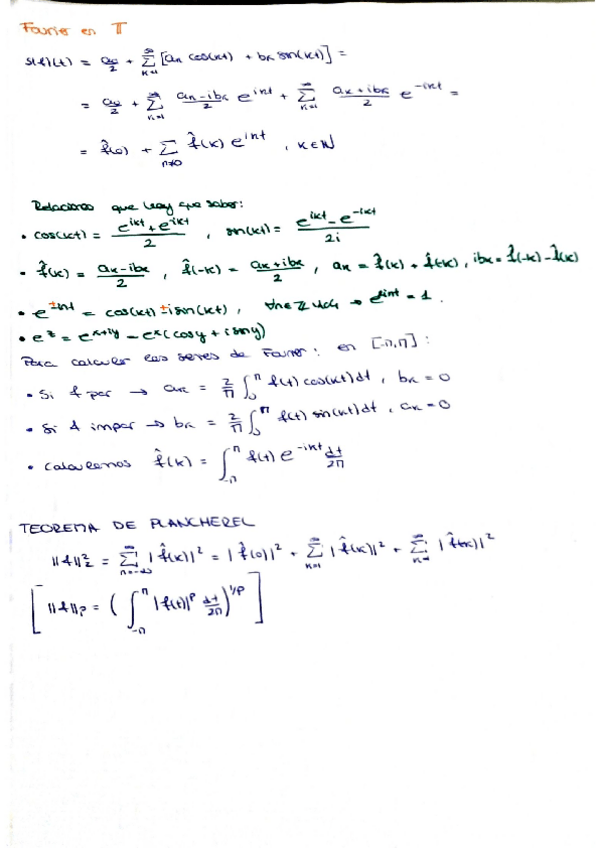 Fourier en 𝕋
S(f)(t) = a₀/2 + ∑_{k=1}^{∞} [aₖ cos(kt) + bₖ sin(kt)] =
= a₀/2 + ∑_{k=1}^{∞} (aₖ-ibₖ)/2 e^{ikt} + ∑_{k=1}^{∞} (aₖ+ibₖ)/2 e^{-ikt} =
= f̂(0) + ∑_{n≠0} f̂(k) e^{int} , k∈ℕ
Relaciones que hay que saber:
• cos(kt) = (e^{ikt}+e^{-ikt})/2 , sin(kt) = (e^{ikt}-e^{-ikt})/2i
• f̂(k) = (aₖ-ibₖ)/2 , f̂(-k) = (aₖ+ibₖ)/2 , aₖ = f̂(k) + f̂(-k) , ibₖ = f̂(-k) - f̂(k)
• e^{±int} = cos(kt) ± i sin(kt) , ∀n∈ℤ → e^{int} = 1.
• e^z = e^{x+iy} = e^x (cos y + i sin y)
Para calcular las series de Fourier: en [-π,π]:
• Si f par → aₖ = 2/π ∫_0^π f(t) cos(kt) dt , bₖ = 0
• Si f impar → bₖ = 2/π ∫_0^π f(t) sin(kt) dt , aₖ = 0
• Calculemos f̂(k) = ∫_{-π}^{π} f(t) e^{-ikt} dt/2π
TEOREMA DE PLANCHEREL
||f||₂² = ∑_{n=-∞}^{∞} |f̂(k)|² = |f̂(0)|² + ∑_{k=1}^{∞} |f̂(k)|² + ∑_{k=1}^{∞} |f̂(-k)|²
[ ||f||ₚ = ( ∫_{-π}^{π} |f(t)|^p dt/2π )^{1/p} ]